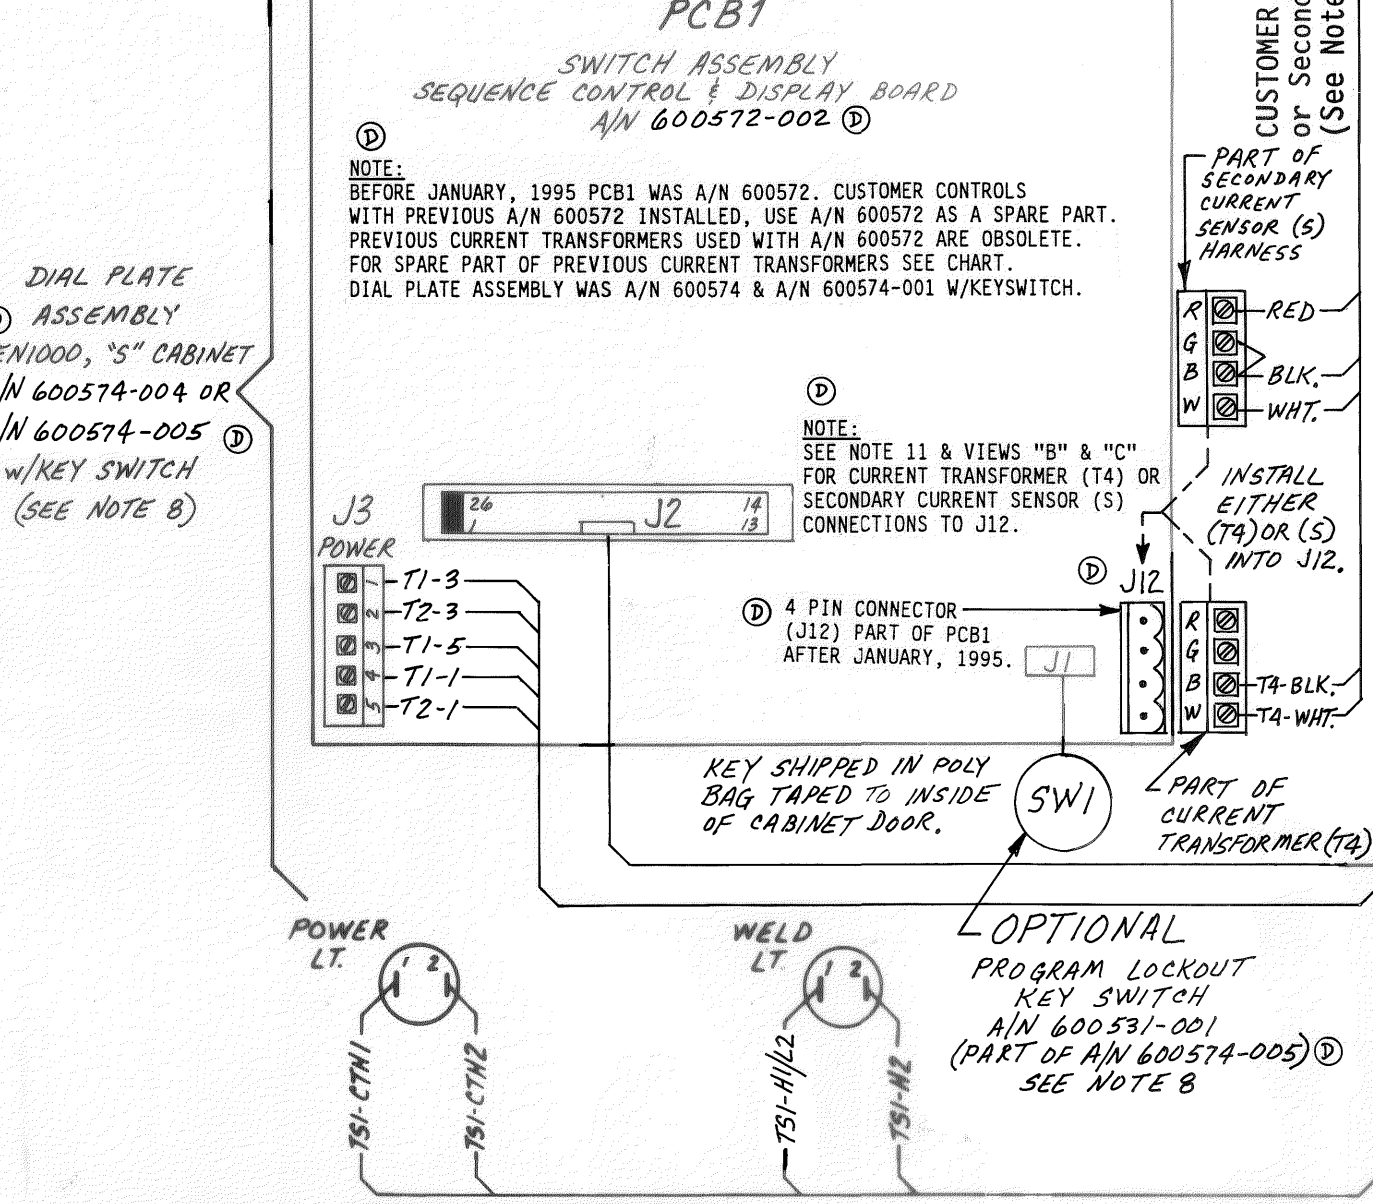 PCB1
SWITCH ASSEMBLY
SEQUENCE CONTROL & DISPLAY BOARD
A/N 600572-002 D
D
NOTE:
BEFORE JANUARY, 1995 PCB1 WAS A/N 600572. CUSTOMER CONTROLS
WITH PREVIOUS A/N 600572 INSTALLED, USE A/N 600572 AS A SPARE PART.
PREVIOUS CURRENT TRANSFORMERS USED WITH A/N 600572 ARE OBSOLETE.
FOR SPARE PART OF PREVIOUS CURRENT TRANSFORMERS SEE CHART.
DIAL PLATE ASSEMBLY WAS A/N 600574 & A/N 600574-001 W/KEYSWITCH.
CUSTOMER
or Second
(See Note
PART OF
SECONDARY
CURRENT
SENSOR (S)
HARNESS
R RED
G
B BLK.
W WHT.
DIAL PLATE
D ASSEMBLY
EN1000, "S" CABINET
/N 600574-004 OR
/N 600574-005 D
w/KEY SWITCH
(SEE NOTE 8)
D
NOTE:
SEE NOTE 11 & VIEWS "B" & "C"
FOR CURRENT TRANSFORMER (T4) OR
SECONDARY CURRENT SENSOR (S)
CONNECTIONS TO J12.
INSTALL
EITHER
(T4) OR (S)
INTO J12.
26 J2 14
1 13
J3
POWER
1 T1-3
2 T2-3
3 T1-5
4 T1-1
5 T2-1
D J12
D 4 PIN CONNECTOR
(J12) PART OF PCB1
AFTER JANUARY, 1995.
J1
R
G
B T4-BLK.
W T4-WHT.
KEY SHIPPED IN POLY
BAG TAPED TO INSIDE
OF CABINET DOOR.
SW1
PART OF
CURRENT
TRANSFORMER (T4)
POWER
LT.
1 2
TS1-CTH1
TS1-CTH2
WELD
LT.
1 2
TS1-H1/L2
TS1-H2
OPTIONAL
PROGRAM LOCKOUT
KEY SWITCH
A/N 600531-001
(PART OF A/N 600574-005) D
SEE NOTE 8